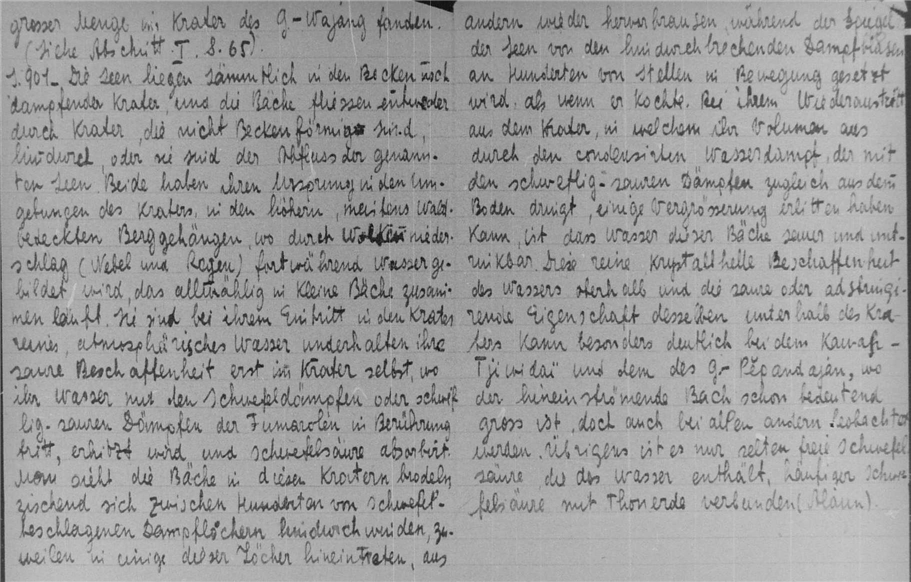 grosser Menge im Krater des G-Wajang fanden.
(Siehe Abschnitt I S. 65).
S. 901- Die Seen liegen sämmtlich in den Becken noch
dampfender Krater, und die Bäche fliessen entweder
durch Krater, die nicht Beckenförmig sind,
hindurch, oder sie sind der Abfluss der genann-
ten Seen. Beide haben ihren Ursprung in den Um-
gebungen des Kraters, in den höhern, meistens Wald-
bedeckten Berggehängen, wo durch Wolken nieder-
schlag (Nebel und Regen) fortwährend Wasser ge-
bildet wird, das allmählig in kleine Bäche zusam-
men läuft. Sie sind bei ihrem Eintritt in den Krater
reines, atmosphärisches Wasser und erhalten ihre
saure Beschaffenheit erst im Krater selbst, wo
ihr Wasser mit den Schwefeldämpfen oder schwef
lig-sauren Dämpfen der Fumarolen in Berührung
tritt, erhitzt wird und schwefelsäure absorbirt.
Man sieht die Bäche in diesen Kratern brodeln
zischend sich zwischen Hunderten von schwefel-
beschlagenen Dampflöchern hindurch winden, zu-
weilen in einige dieser Löcher hineintreten, aus
andern wieder hervorbrausen, während der Spiegel
der Seen von den hindurchbrechenden Dampfblasen
an Hunderten von Stellen in Bewegung gesetzt
wird, als wenn er kochte. Bei ihrem Wiederaustritt
aus dem Krater, in welchem ihr Volumen aus
durch den condensirten Wasserdampf, der mit
den schweflig-sauren Dämpfen zugleich aus dem
Boden dringt, einige Vergrösserung erlitten haben
kann, ist dass Wasser dieser Bäche sauer und unt-
rinkbar. Diese reine, krystallhelle Beschaffenheit
des Wassers oberhalb und die saure oder adstringi-
rende Eigenschaft desselben unterhalb des Kra-
ters kann besonders deutlich bei dem Kawah-
Tjiwidaï und dem des G- Pĕpandajan, wo
der hineinströmende Bach schon bedeutend
gross ist, doch auch bei allen andern beobachtet
werden. Übrigens ist es nur selten freie Schwefel
säure die das Wasser enthält, häufiger Schwe
felsäure mit Thonerde verbunden (Alaun).